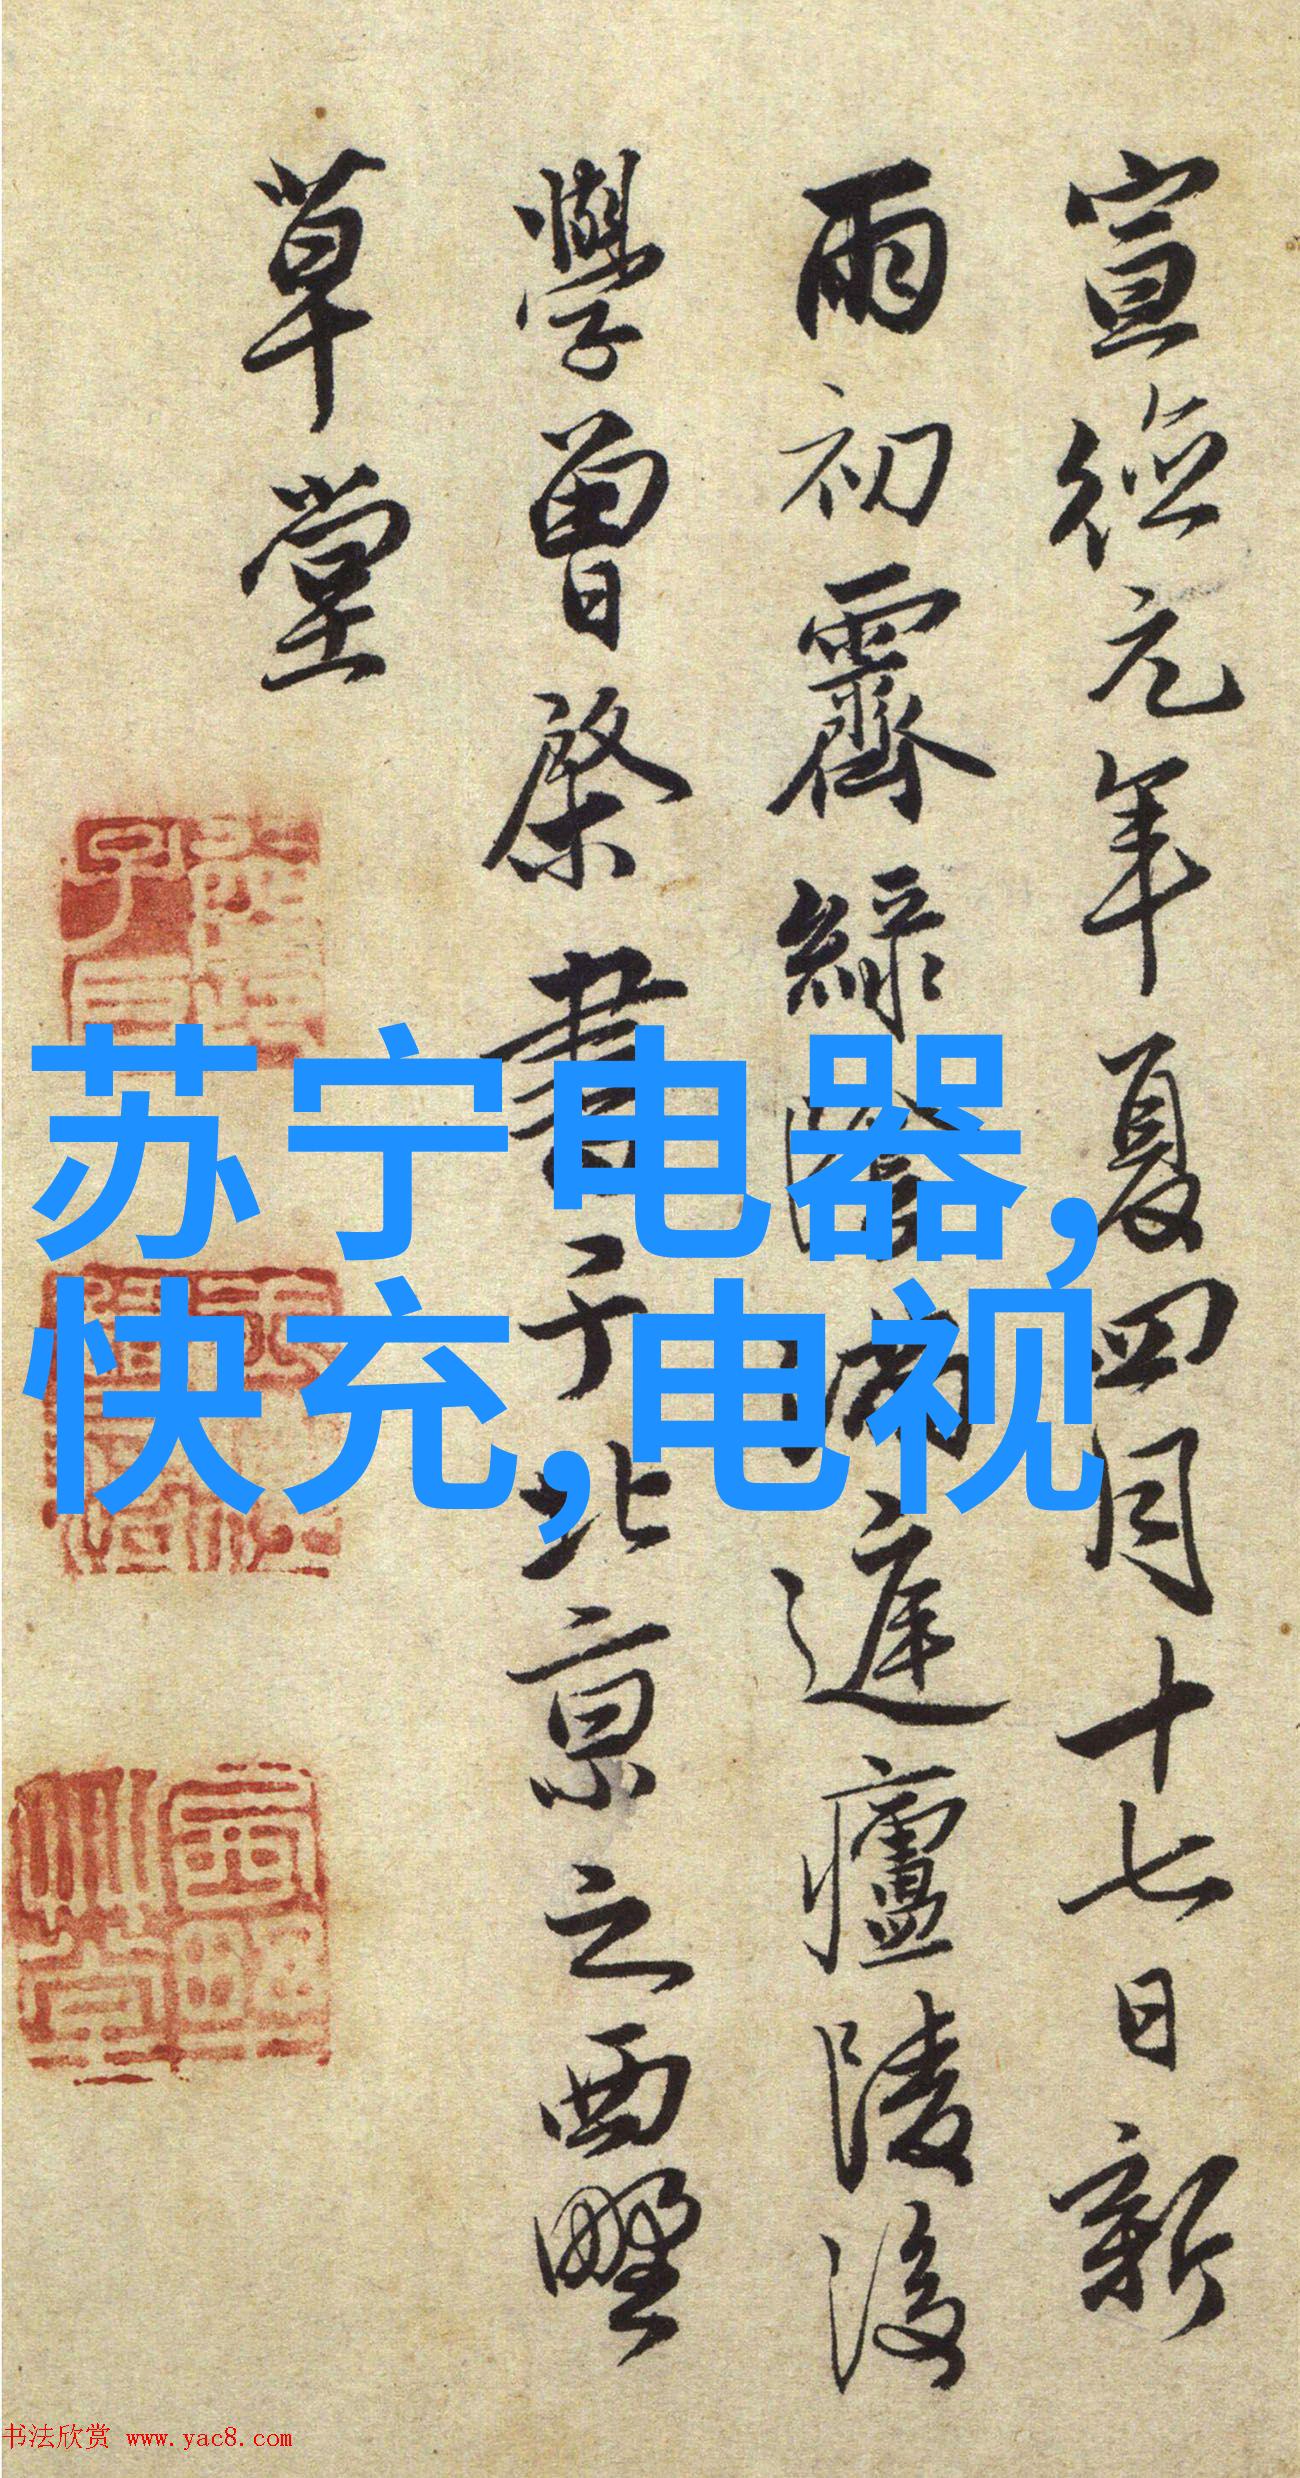 宣德元年夏四月十七日新
雨初霽綠陰滿庭廬陵後
學曾棨書于北京之西墅
草堂
苏宁电器,
快充,电视
书法欣赏 www.yac8.com